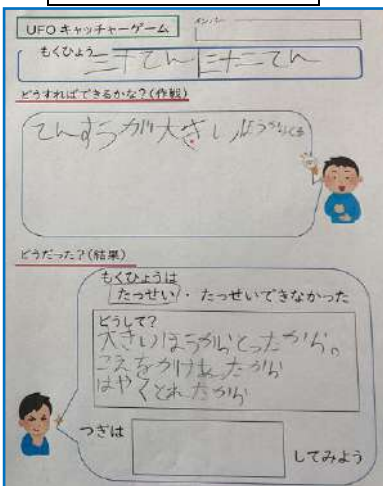 UFOキャッチャーゲーム
メンバー
もくひょう
三十てん 三十二てん
どうすればできるかな?(作戦)
てんすうが大きいほうからとる
どうだった?(結果)
もくひょうは
たっせい・たっせいできなかった
どうして?
大きいほうからとったから。
こえをかけあったから
はやくとれたから
つぎは
してみよう